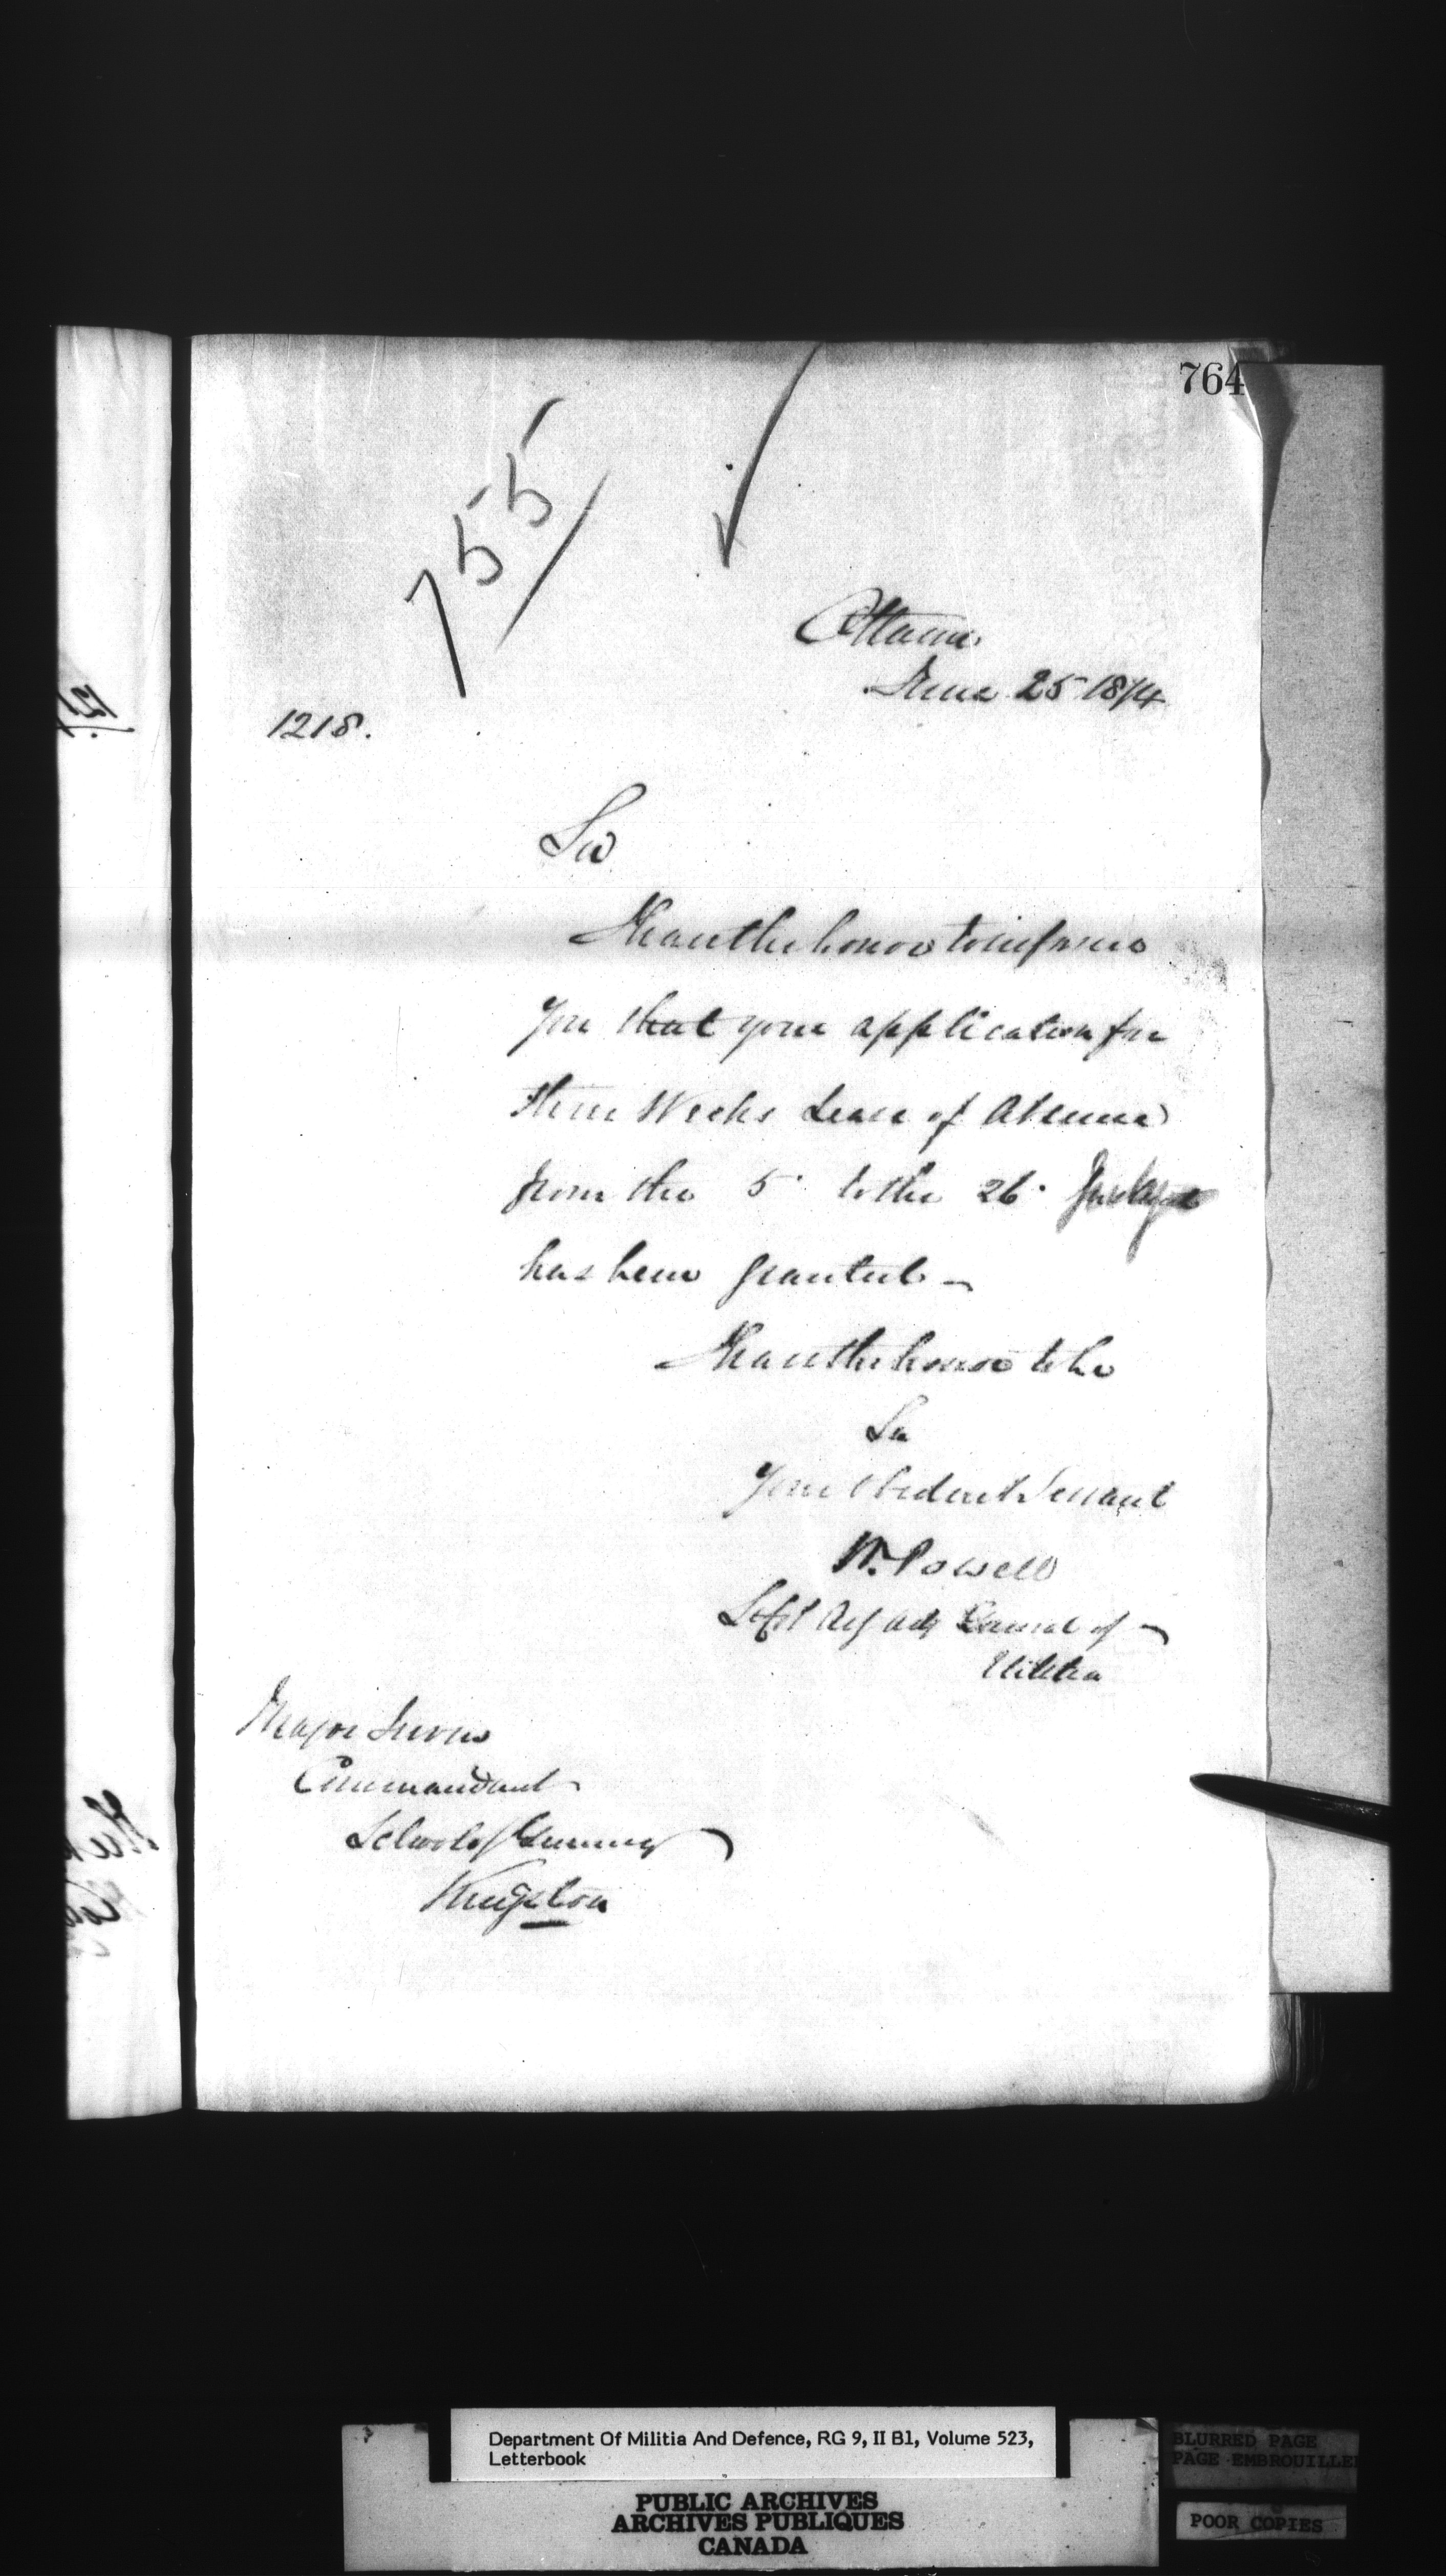 764
755
Ottawa
June 25 1874
1218.
Sir
I have the honor to inform
you that your application for
three Weeks Leave of Absence
from the 5 to the 26 July
has been granted
I have the honor to be
Sir
Your obedient Servant
W. Powell
Adj General of
Militia
Major Irwin
Commandant
School of Gunnery
Kingston
Department Of Militia And Defence, RG 9, II B1, Volume 523,
Letterbook
PUBLIC ARCHIVES
ARCHIVES PUBLIQUES
CANADA
BLURRED PAGE
PAGE EMBROUILLEE
POOR COPIES